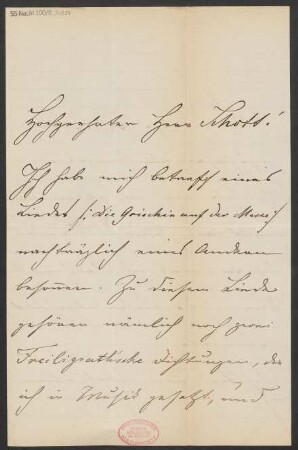 Hochgeehrter Herr Schott!
Ich habe mich betreffs eines
Liedes /: Die Griechin auf der Messe :/
nachträglich eines Andern
besonnen. Zu diesem Liede
gehören nämlich noch zwei
Freiligrath'sche Dichtungen, die
ich in Musik gesetzt, und